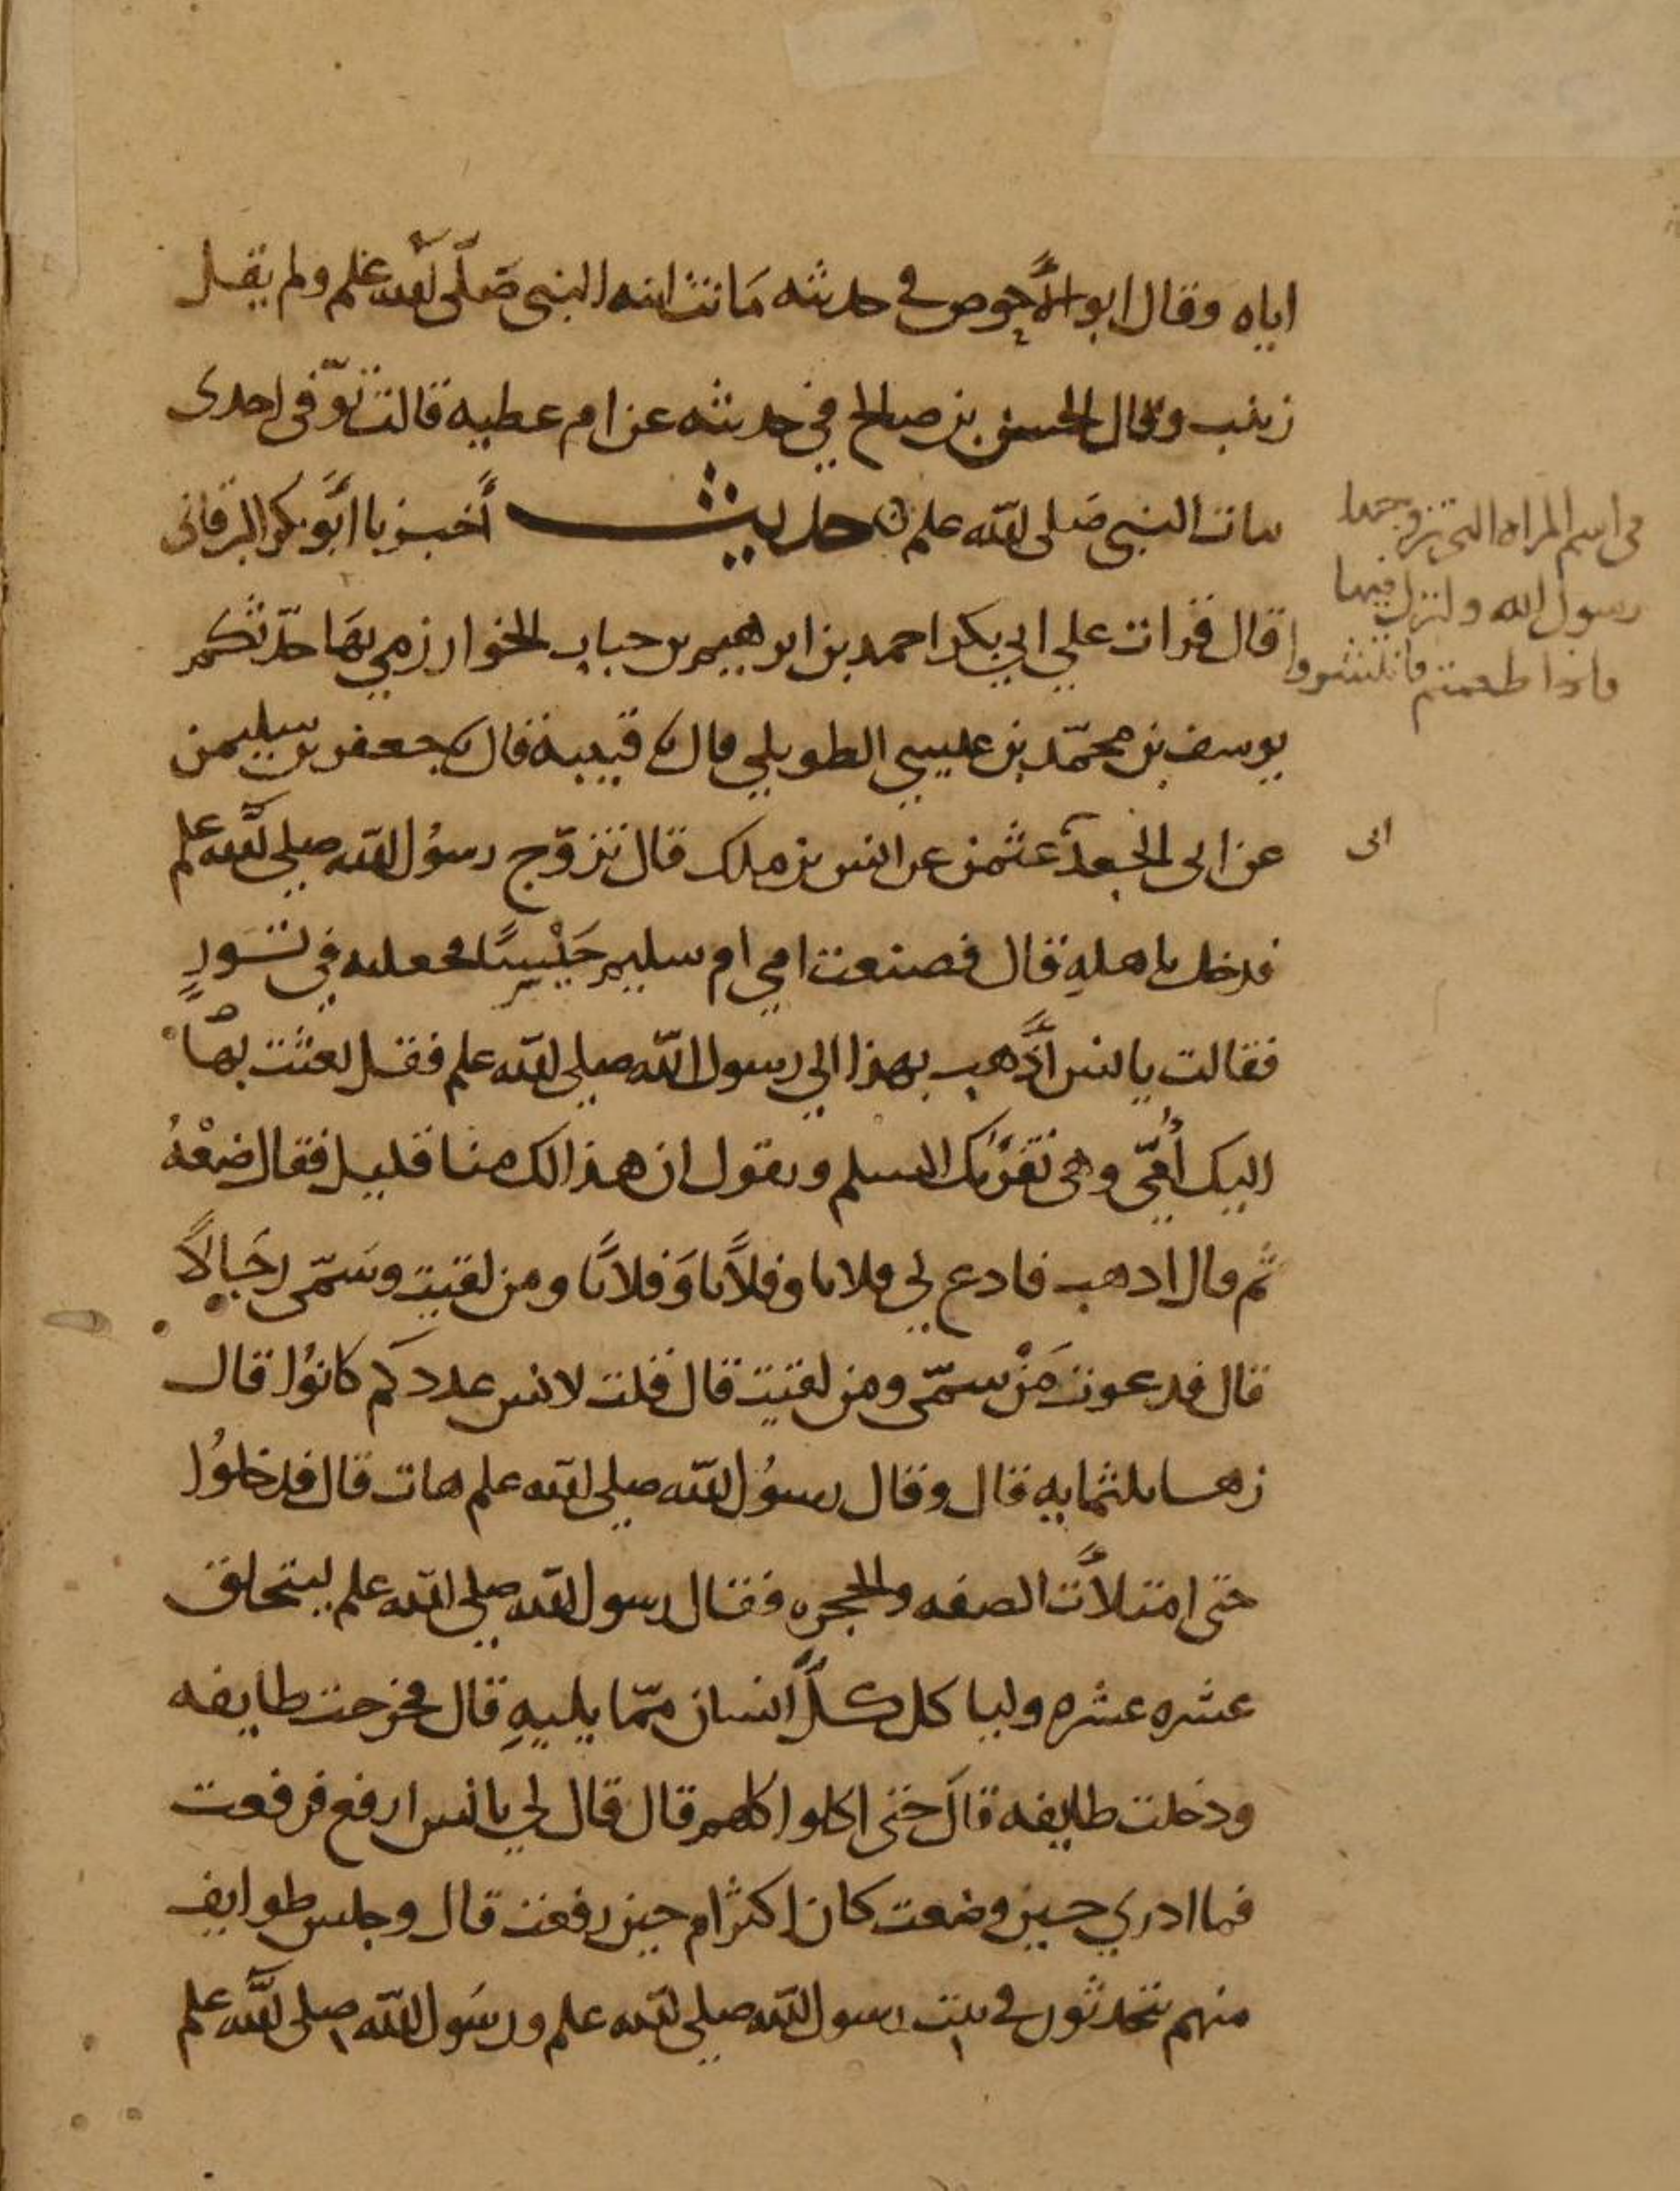 اياه وقال ابو الأحوص في حديثه ماتت ابنه النبي صَلّى الله علم ولم يقل
زينب وقال الحسن بن صالح في حديثه عن ام عطيه قالت توّفى احدى
بنات النبي صَلى الله علم حديث أخبرنا أبَو بكر البرقانى
قال قرات علي ابي بكر احمد بن ابرهيم بن حباب الخوارزمي بهَا حدّثكم
يوسف بن محمّد بن عيسي الطويلي قال نا قتيبة قال نا جعفر بن سليمن
عن ابى الجعد عثمن عن انس بن ملك قال تزوّج رسوُل الله صلى الله علم
فدخل باهلهِ قال فصنعت امي ام سليم حَيْسًا فجعلته في تَورٍ
فقالت يا انس اذَهب بهذا الي رسول الله صلى الله علم فقل بعثت بهَا
اليك أُمّي وهى تقرئك السلم وتقول ان هذا لك منا قليل فقال ضعْهُ
ثم قال اذهب فادع لي فلانا وفلاَنا وَفلانا ومن لقيت وسَمّى رجَالاً
قال فدعوت مَنْ سمّى ومن لقيت قال قلت لانس عدد كَم كانوُا قال
زها ثلثمايه قال وقال رسوُل الله صلى الله علم هات قال فدخلوُا
حتى امتلأت الصفه والحجره فقال رسول الله صلى الله علم ليتحلق
عشره عشره ولياكل كلّ انسان ممّا يليهِ قال فخرجت طايفه
ودخلت طايفه قالَ حتى اكلوا كلهم قال قال لي يا انس ارفع فرفعت
فما ادري حين وضعت كان اكثر ام حين رفعت قال وجلس طوايف
منهم يتحدثون في بيت رسول الله صلى الله علم ورسَول الله صلى الله علم
فى اسم المراه التى تزوجها
رسول الله ونزل فيها
فاذا طعمتم فانتشروا
ابى